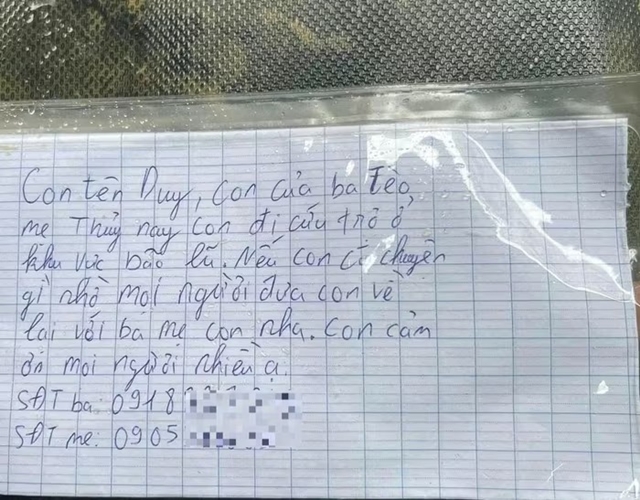 Con tên Duy, con của ba Tèo,
mẹ Thủy nay con đi cứu trợ ở
khu vực bão lũ. Nếu con có chuyện
gì nhờ mọi người đưa con về
lại với ba mẹ con nha. Con cảm
ơn mọi người nhiều ạ.
SĐT ba: 0918
SĐT mẹ: 0905